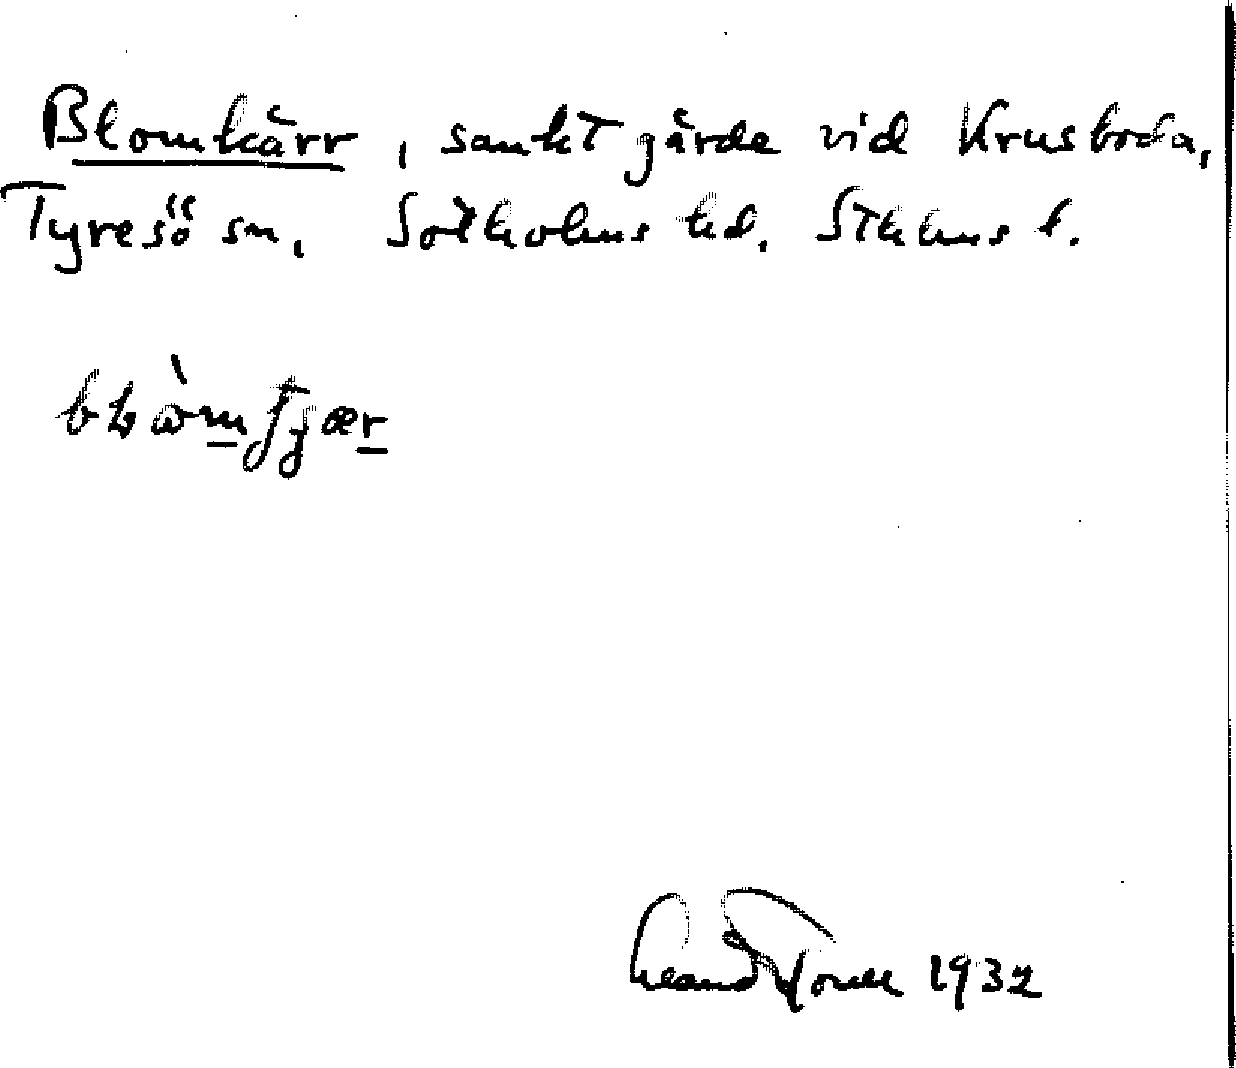 Blomkärr, sankt gärde vid Krusboda,
Tyresö sn, Sotholms hd. Sthlms l.
1932